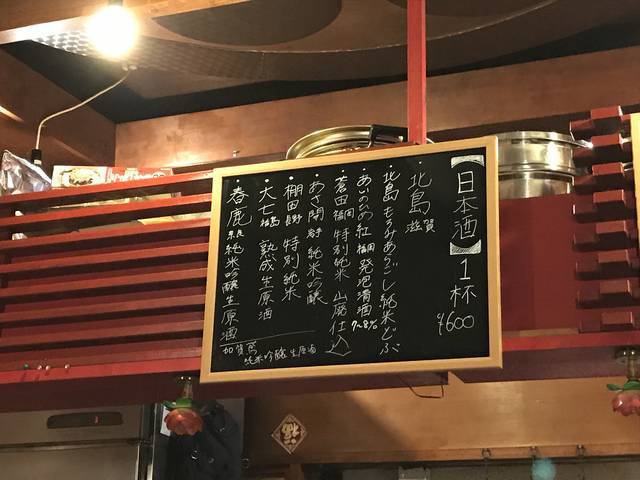 【日本酒】1杯
¥600
・北島 滋賀
北島 もろみあらごし純米どぶ
・あいのひめ紅 福岡 発泡清酒 7~8%
・蒼田 福岡 特別純米 山廃仕込
・あさ開 岩手 純米吟醸
・棚田 長野 特別純米
・大七 福島 熟成生原酒
・春鹿 奈良 純米吟醸生原酒
加賀鳶
純米吟醸生原酒
福